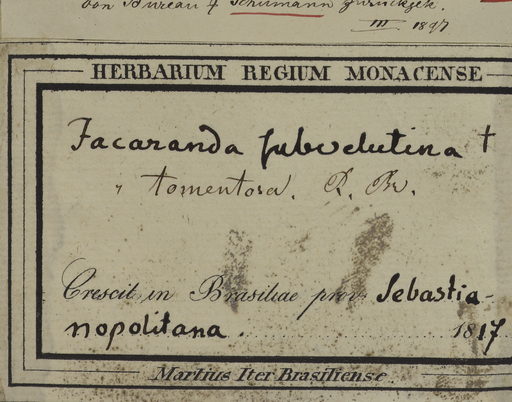 von Bureau & Schumann zurückgek.
III. 1897
HERBARIUM REGIUM MONACENSE
Jacaranda subvelutina †
" tomentosa. R. Br.
Crescit in Brasiliae prov. Sebastia-
nopolitana. 1817
Martius Iter Brasiliense